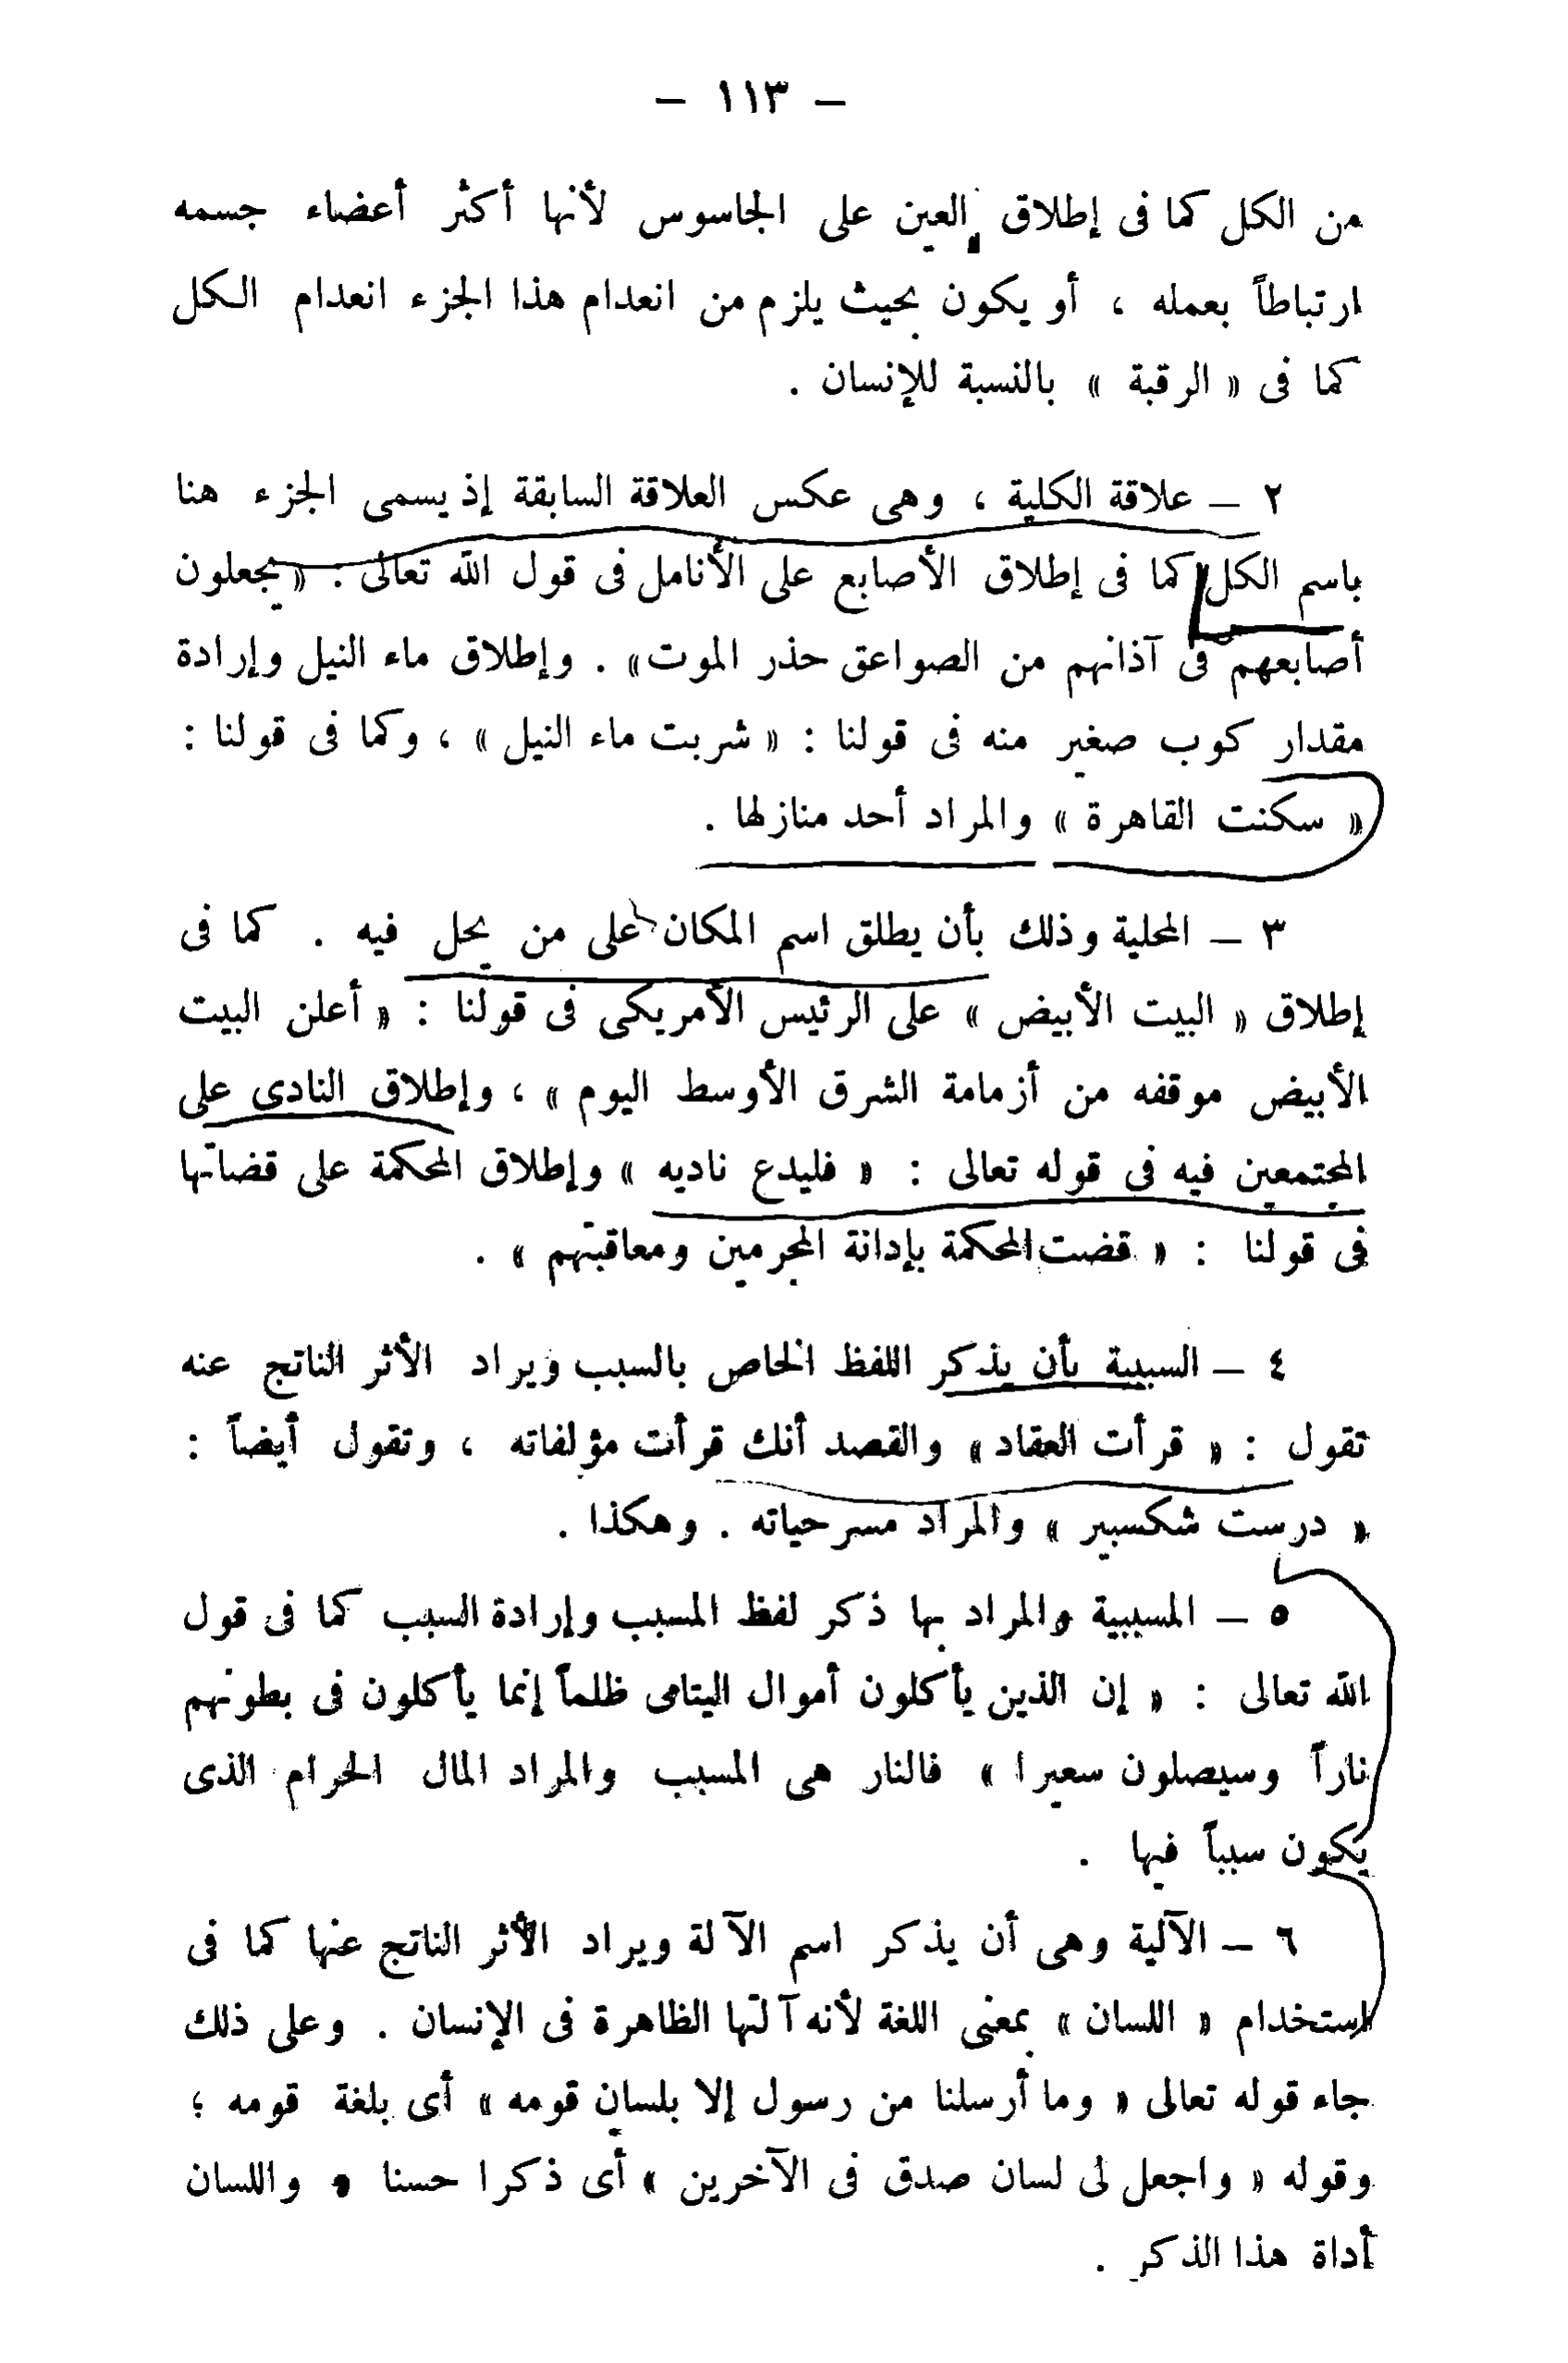 — ١١٣ —
من الكل كما فى إطلاق العين على الجاسوس لأنها أكثر أعضاء جسمه
ارتباطاً بعمله ، أو يكون بحيث يلزم من انعدام هذا الجزء انعدام الكل
كما فى « الرقبة » بالنسبة للإنسان .
٢ — علاقة الكلية ، وهى عكس العلاقة السابقة إذ يسمى الجزء هنا
باسم الكل كما فى إطلاق الأصابع على الأنامل فى قول الله تعالى : « يجعلون
أصابعهم فى آذانهم من الصواعق حذر الموت» . وإطلاق ماء النيل وإرادة
مقدار كوب صغير منه فى قولنا : « شربت ماء النيل » ، وكما فى قولنا :
« سكنت القاهرة » والمراد أحد منازلها .
٣ — المحلية وذلك بأن يطلق اسم المكان على من يحل فيه . كما فى
إطلاق « البيت الأبيض » على الرئيس الأمريكى فى قولنا : « أعلن البيت
الأبيض موقفه من أزمامة الشرق الأوسط اليوم » ، وإطلاق النادى على
المجتمعين فيه فى قوله تعالى : « فليدع ناديه » وإطلاق المحكمة على قضاتها
فى قولنا : « قضت المحكمة بإدانة المجرمين ومعاقبتهم » .
٤ — السببية بأن يذكر اللفظ الخاص بالسبب ويراد الأثر الناتج عنه
تقول : « قرأت العقاد » والقصد أنك قرأت مؤلفاته ، وتقول أيضاً :
« درست شكسبير » والمراد مسرحياته . وهكذا .
٥ — المسببية والمراد بها ذكر لفظ المسبب وإرادة السبب كما فى قول
الله تعالى : « إن الذين يأكلون أموال اليتامى ظلماً إنما يأكلون فى بطونهم
ناراً وسيصلون سعيرا » فالنار هى المسبب والمراد المال الحرام الذى
يكون سبباً فيها .
٦ — الآلية وهى أن يذكر اسم الآلة ويراد الأثر الناتج عنها كما فى
استخدام « اللسان » بمعنى اللغة لأنه آلتها الظاهرة فى الإنسان . وعلى ذلك
جاء قوله تعالى « وما أرسلنا من رسول إلا بلسان قومه » أى بلغة قومه ؛
وقوله « واجعل لى لسان صدق فى الآخرين » أى ذكرا حسنا « واللسان
أداة هذا الذكر .